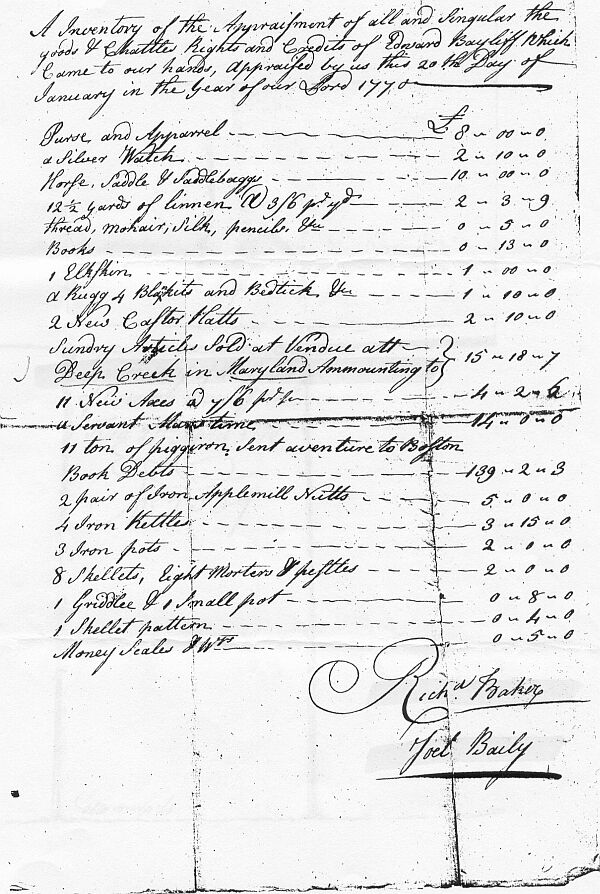 A Inventory of the Appraisment of all and Singular the
goods & Chattles Rights and Credits of Edward Bayliff Which
Came to our hands, Appraised by us this 20th Day of
January in the Year of our Lord 1770
Purse and Apparrel £ 8 " 00 " 0
a Silver Watch 2 " 10 " 0
Horse, Saddle & Saddlebaggs 10 " 00 " 0
12½ yards of linnen @ 3/6 pr yd 2 " 3 " 9
thread, mohair, Silk, pencils, &c 0 " 5 " 0
Books 0 " 13 " 0
1 Elkskin 1 " 00 " 0
a Rugg 4 Blankits and Bedtick &c 1 " 10 " 0
2 New Castor Hatts 2 " 10 " 0
Sundry Articles Sold at Vendue att
Deep Creek in Maryland Ammounting to } 15 " 18 " 7
11 New Axes a 7/6 pr 4 " 2 " 6
a Servant Mans time 14 " 0 " 0
11 ton of piggiron Sent aventure to Boston
Book Debts 139 " 2 " 3
2 pair of Iron Applemill Nutts 5 " 0 " 0
4 Iron Kettles 3 " 15 " 0
3 Iron pots 2 " 0 " 0
8 Skellets, Eight Morters & pestles 2 " 0 " 0
1 Griddle & 1 Small pot 0 " 8 " 0
1 Skellet pattern 0 " 4 " 0
Money Scales & Wts 0 " 5 " 0
Richd Baker
Joel Baily